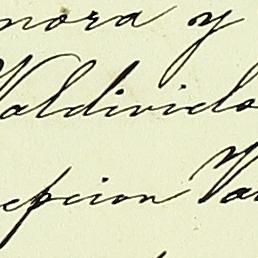 nora y
Valdivielso
cepcion Va